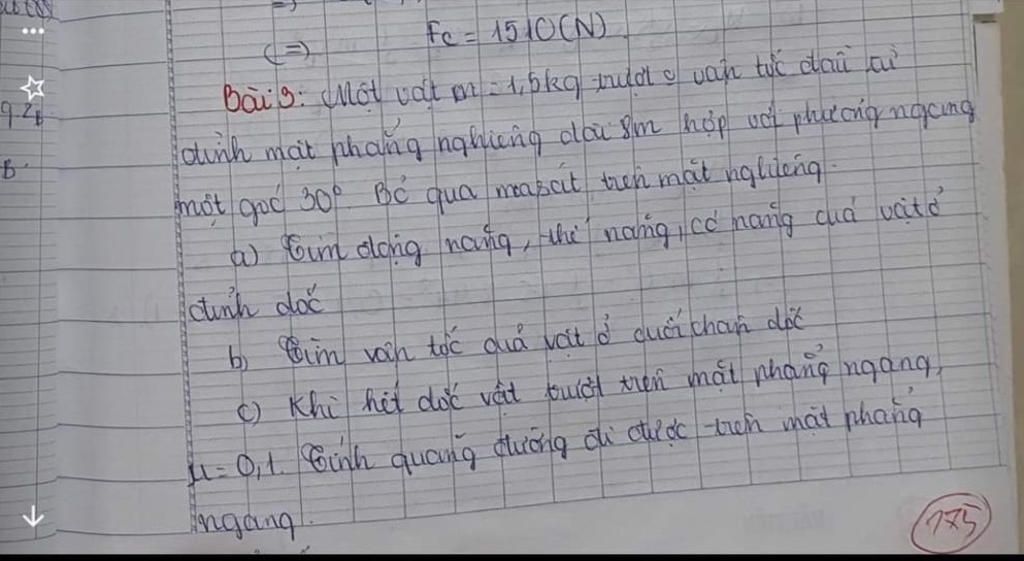 (=) Fc = 1510(N)
Bài 3: Một vật m = 1,5kg trượt o vận tốc đầu từ
đỉnh mặt phẳng nghiêng dài 8m hợp với phương ngang
một góc 30° Bỏ qua masat trên mặt nghiêng.
a) Tìm động năng, thế năng, cơ năng của vật ở
đỉnh dốc
b) Tìm vận tốc của vật ở dưới chân dốc
c) Khi hết dốc vật trượt trên mặt phẳng ngang,
μ = 0,1. Tính quãng đường đi được trên mặt phẳng
ngang.
175